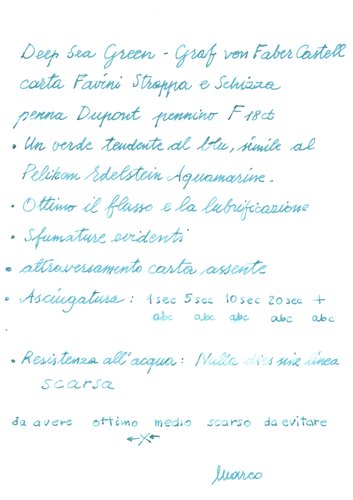 Deep Sea Green - Graf von Faber Castell
carta Favini Strappa e Schizza
penna Dupont pennino F 18ct
• Un verde tendente al blu, simile al
Pelikan Edelstein Aquamarine.
• Ottimo il flusso e la lubrificazione
• Sfumature evidenti
• attraversamento carta assente
• Asciugatura: 1sec 5sec 10sec 20sec +
abc abc abc abc abc
• Resistenza all'acqua: Nulla dies sine linea
scarsa
da avere ottimo medio scarso da evitare
←X→
Marco